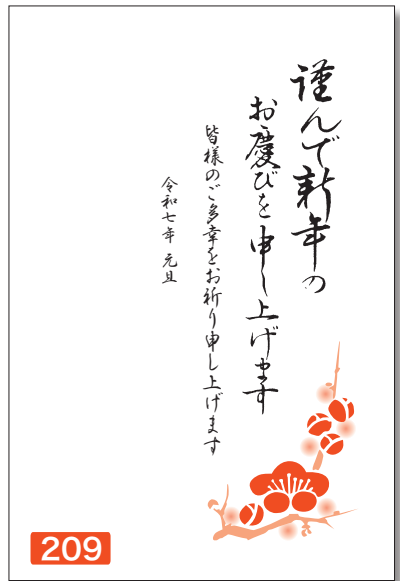 謹んで新年の
お慶びを申し上げます
皆様のご多幸をお祈り申し上げます
令和七年 元旦
209